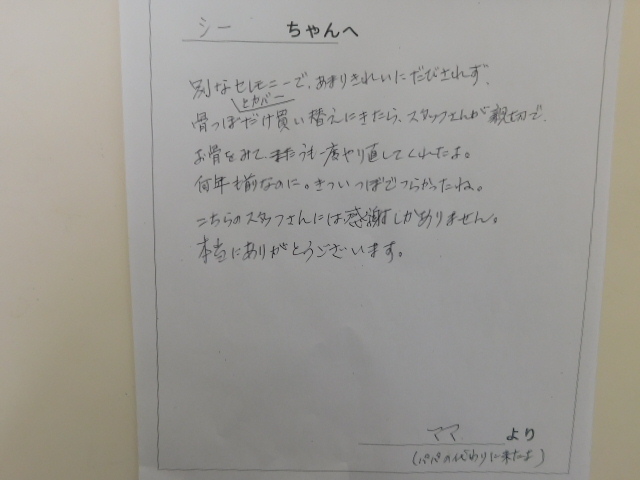 シー ちゃんへ
別なセレモニーで、あまりきれいにだびされず、
とカバー
骨つぼだけ買い替えにきたら、スタッフさんが親切で、
お骨をみて、またもう一度やり直してくれたよ。
何年も前なのに。きついつぼでつらかったね。
こちらのスタッフさんには感謝しかありません。
本当にありがとうございます。
ママ より
(パパの代わりに来たよ)